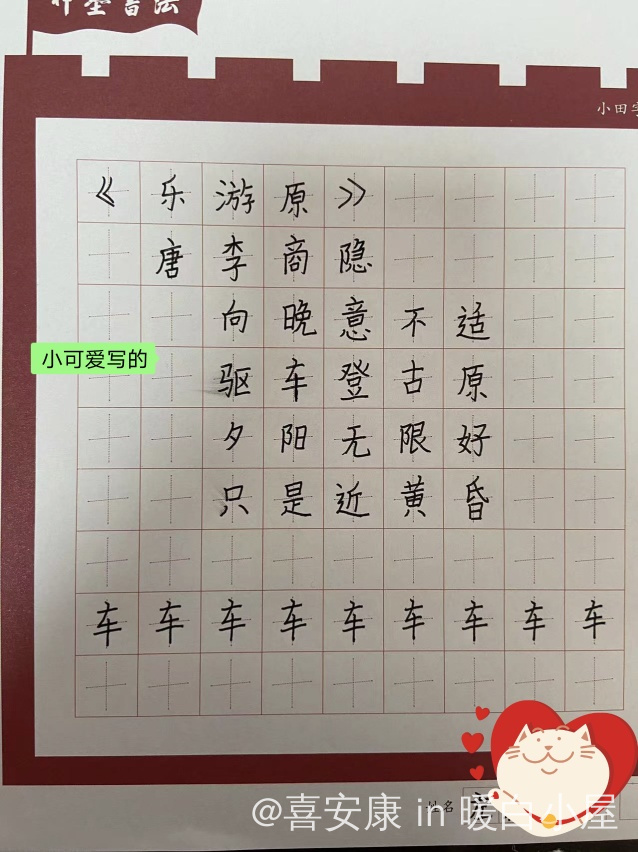 小田字
《乐游原》
唐李商隐
向晚意不适
小可爱写的
驱车登古原
夕阳无限好
只是近黄昏
车车车车车车车车车
姓名
@喜安康 in 暖白小屋